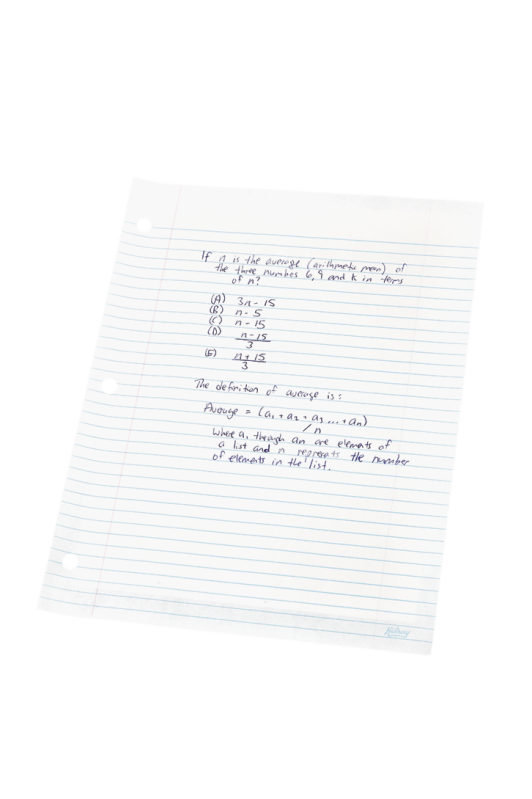 If n is the average (arithmetic mean) of
the three numbers 6, 9 and k in terms
of n?
(A) 3n - 15
(B) n - 5
(C) n - 15
(D) n - 15
3
(E) n + 15
3
The definition of average is:
Average = (a₁ + a₂ + a₃ ... + aₙ)
/ n
Where a₁ through an are elements of
a list and n represents the number
of elements in the list.